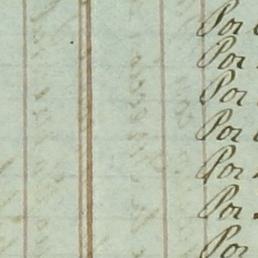 Por
Por
Por
Por
Por
Por
Por